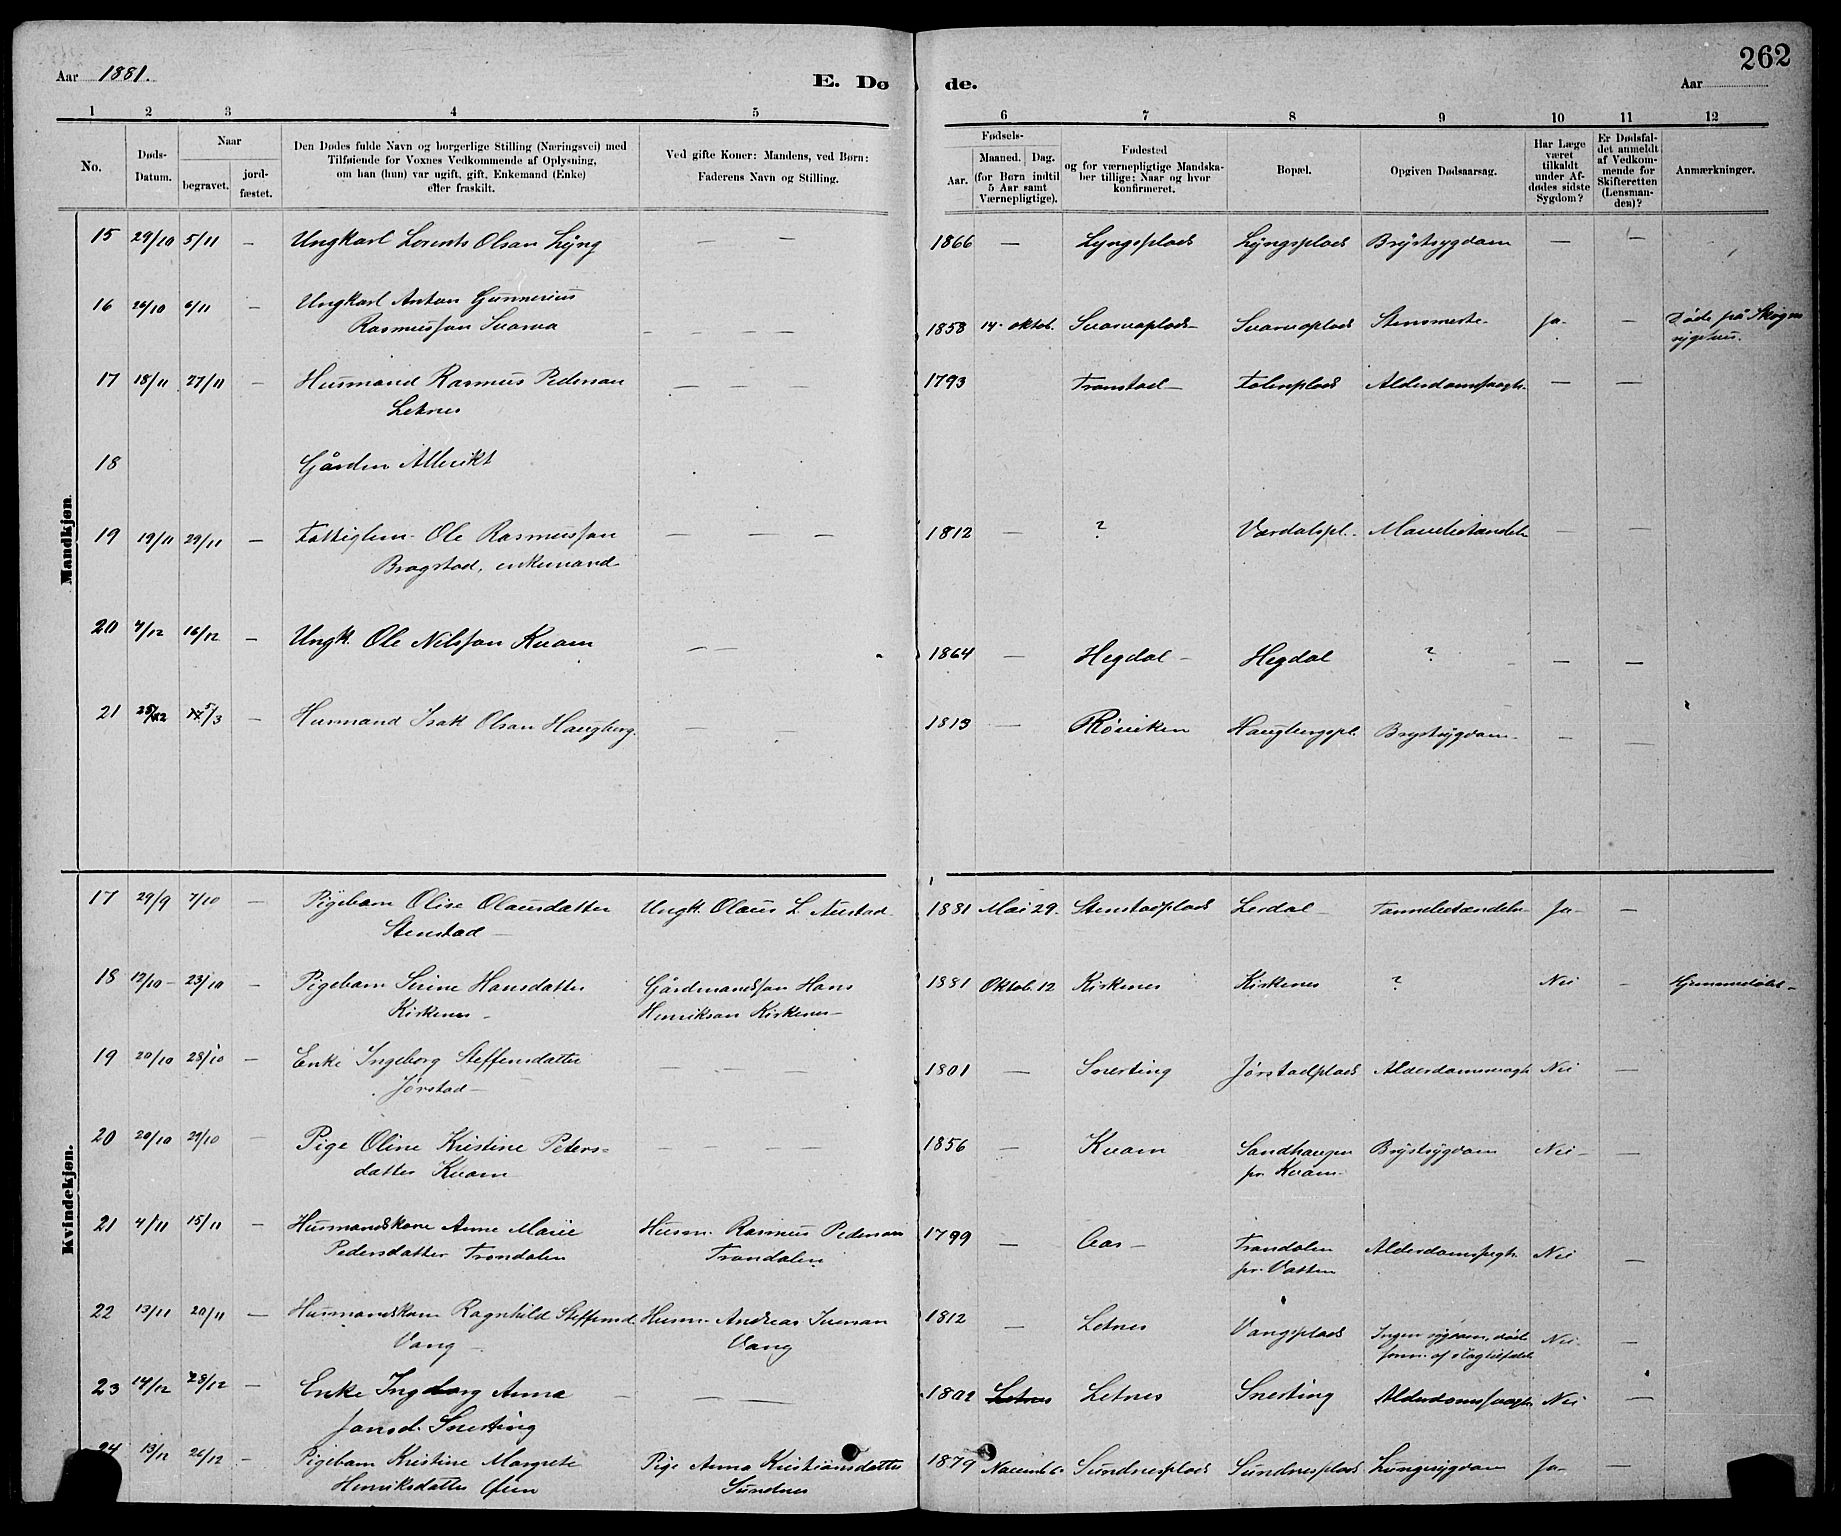 262
Aar 1881.
E. Dø de.
Aar
1 2 3 4 5 6 7 8 9 10 11 12
No.
Døds-Datum.
Naar
begravet.
jord-fæstet.
Den Dødes fulde Navn og borgerlige Stilling (Næringsvei) med
Tilføiende for Voxnes Vedkommende af Oplysning,
om han (hun) var ugift, gift, Enkemand (Enke)
eller fraskilt.
Ved gifte Koner: Mandens, ved Børn:
Faderens Navn og Stilling.
Fødsels-
Aar.
Maaned. Dag.
(for Børn indtil
5 Aar samt
Værnepligtige).
Fødested
og for værnepligtige Mandska-
ber tillige: Naar og hvor
konfirmeret.
Bopæl.
Opgiven Dødsaarsag.
Har Læge
været
tilkaldt
under Af-
dødes sidste
Sygdom?
Er Dødsfal-
det anmeldt
af Vedkom-
mende for
Skifteretten
(Lensman-
den)?
Anmærkninger.
Mandkjøn.
15 29/10 5/11 — Ungkarl Lorents Olsen Lyng — — 1866 — Lyngsplads Lyngsplads Brystsygdom — —
16 26/10 6/11 — Ungkarl Anton Gunnerius
Rasmussen Svarva — — — 1858 14. oktob. Svarvaplads Svarvaplads Stensmerte Ja — Døde på Skogn
sygehus.
17 18/11 27/11 — Husmand Rasmus Pedersen
Letnes — — — 1793 Tronstad Folenplads Alderdomssvagh. — —
18 Gården Allerikt
19 19/11 29/11 — Fattiglem Ole Rasmussen
Bragstad, enkemand — — — 1812 — ? Værdalspl. — —
20 7/12 16/12 — Ungk. Ole Nilssen Kvam — — 1864 — Hegdal Hegdal ? — —
21 28/12 5/3 — Husmand Isak Olsen Haugberg — — 1813 — Røviken Haugbergspl. Brystsygdom — —
Kvindekjøn.
17 29/9 7/10 — Pigebarn Olise Olausdatter
Stenstad Ungk. Olaus L. Austad 1881 Mai 29. Stenstadplads Lerdal Ja —
18 12/10 23/10 — Pigebarn Serine Hansdatter
Kirkenes Gårdmandssøn Hans
Henriksen Kirkenes 1881 Oktob. 12 Kirkenes Kirkenes ? Nei — Hjemmedøbt
19 20/10 28/10 — Enke Ingeborg Steffensdatter
Jørstad — — — 1801 — Snerting Jørstadplads Alderdomssvagh. Nei —
20 20/10 29/10 — Pige Oline Kristine Peters-
datter Kvam — — — 1856 — Kvam Sandhaugen
pr. Kvam Brystsygdom Nei —
21 4/11 15/11 — Husmandskone Anne Marie
Pedersdatter Trondalen Husm. Rasmus Pedersen
Trondalen 1799 — Aas Trondalen
pr. Vatten Alderdomssvagh. Nei —
22 13/11 20/11 — Husmandskone Ragnhild Steffensd.
Vang Husm. Andreas Iversen
Vang 1812 — Letnes Vangsplads Ingen sygdom, døde
form. af slagtilfælde Nei —
23 14/12 28/12 — Enke Ingeborg Anna
Jonsd. Snerting — — 1802 Letnes Letnes Snerting Alderdomssvagh. Nei —
24 13/12 26/12 — Pigebarn Kristine Margrete
Henriksdatter Pige Anna Kristiansdatter
Sundnes 1879 Novemb. 6 Sundnesplads Sundnesplads Lungesygdom Ja —